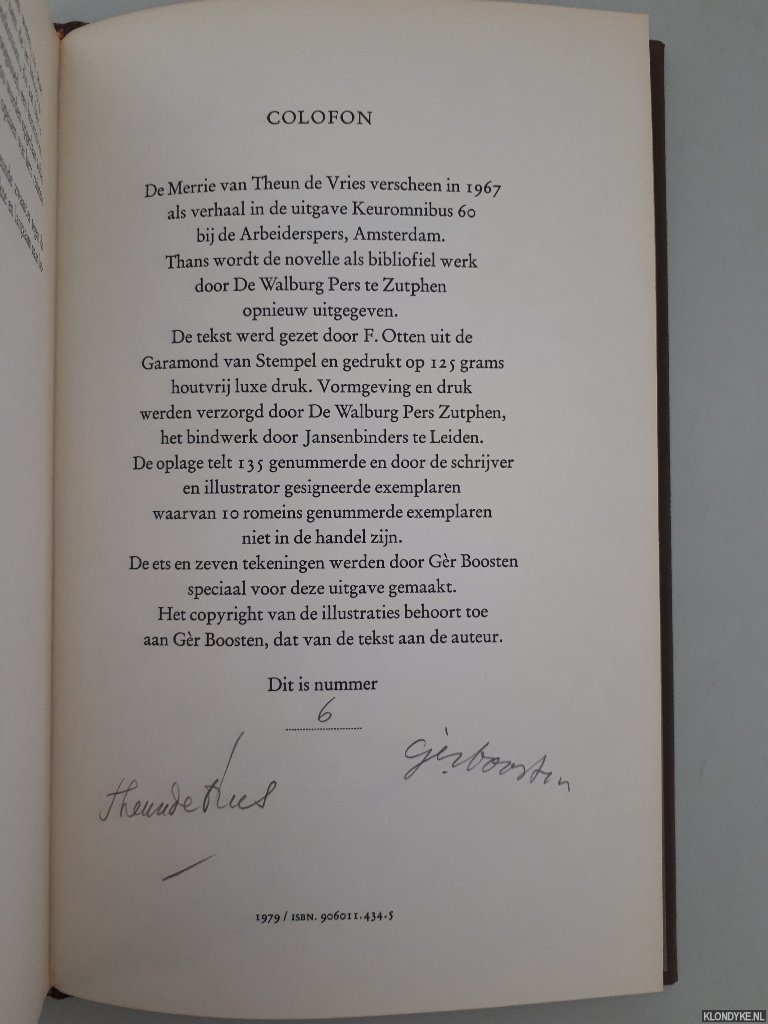 COLOFON
De Merrie van Theun de Vries verscheen in 1967
als verhaal in de uitgave Keuromnibus 60
bij de Arbeiderspers, Amsterdam.
Thans wordt de novelle als bibliofiel werk
door De Walburg Pers te Zutphen
opnieuw uitgegeven.
De tekst werd gezet door F. Otten uit de
Garamond van Stempel en gedrukt op 125 grams
houtvrij luxe druk. Vormgeving en druk
werden verzorgd door De Walburg Pers Zutphen,
het bindwerk door Jansenbinders te Leiden.
De oplage telt 135 genummerde en door de schrijver
en illustrator gesigneerde exemplaren
waarvan 10 romeins genummerde exemplaren
niet in de handel zijn.
De ets en zeven tekeningen werden door Gèr Boosten
speciaal voor deze uitgave gemaakt.
Het copyright van de illustraties behoort toe
aan Gèr Boosten, dat van de tekst aan de auteur.
Dit is nummer
6
gèrboosten
Theun de Vries
1979 / ISBN. 906011.434.5
KLONDYKE.NL